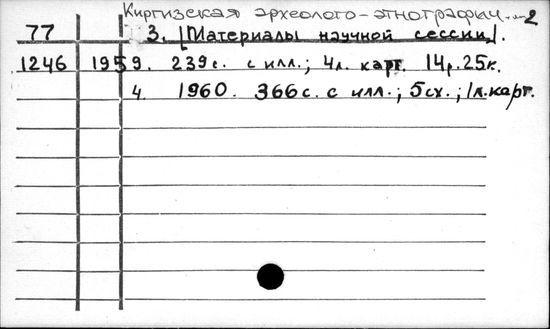 Киргизская археолого-этнографич....2
77 3. [Материалы научной сессии].
1246 1959. 239с. с илл.; 4л. карт. 14р.25к.
4. 1960. 366с. с илл.; 5сх.; 1л.карт.